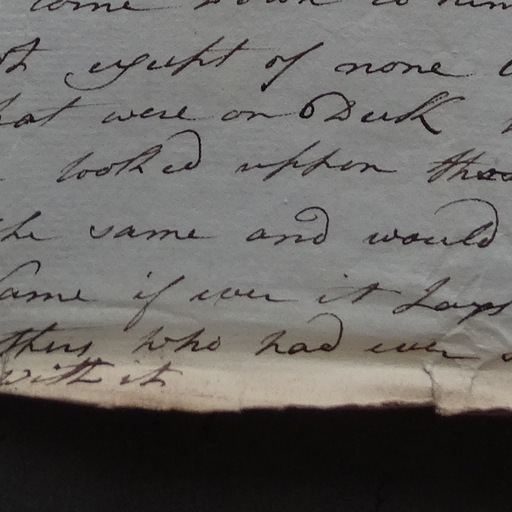 come down to him
except of none
hat were on Deck
looked uppon thos
the same and would
Same if ever it Lays
thers who had ever
with it